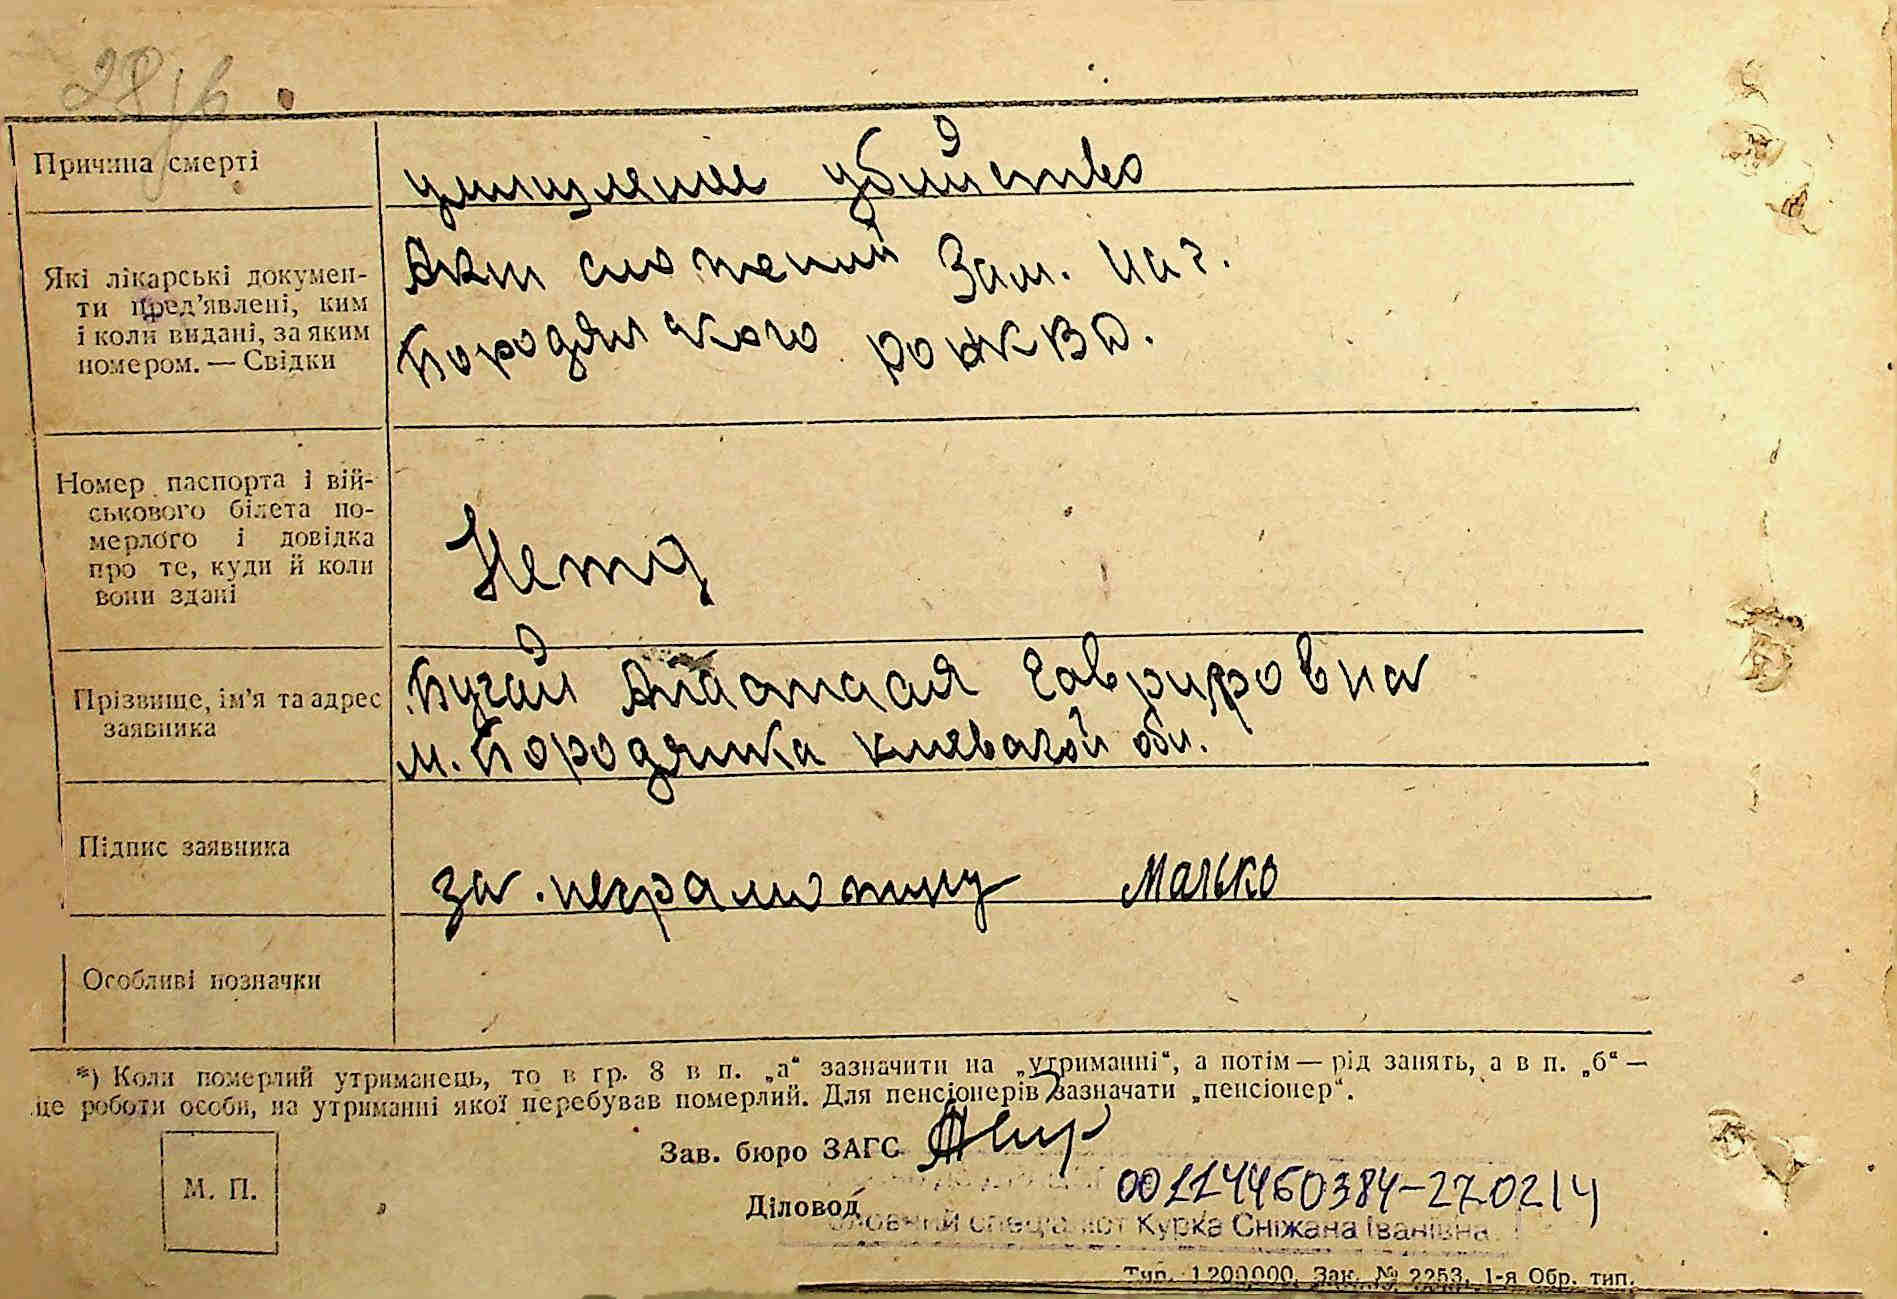 28/в
Причина смерті
умишленое убийство
Які лікарські докумен-
ти пред'явлені, ким
і коли видані, за яким
номером. — Свідки
Акт сложений Зам. нач.
Бородянского РОНКВД.
Номер паспорта і вій-
ськового білета по-
мерлого і довідка
про те, куди й коли
вони здані
Нету
Прізвище, ім'я та адрес
заявника
Бугай Анастасия
м. Бородянка киевской обл.
Підпис заявника
за неграмотну Малько
Особливі позначки
*) Коли померлий утриманець, то в гр. 8 в п. „а“ зазначити на „утриманні“, а потім — рід занять, а в п. „б“ —
це роботи особи, на утриманні якої перебував померлий. Для пенсіонерів зазначати „пенсіонер“.
М. П.
Зав. бюро ЗАГС
Діловод
00114460384-270214
головний спеціаліст Курка Сніжана Іванівна
Тип. 1200000. Зак. № 2253. 1-я Обр. тип.